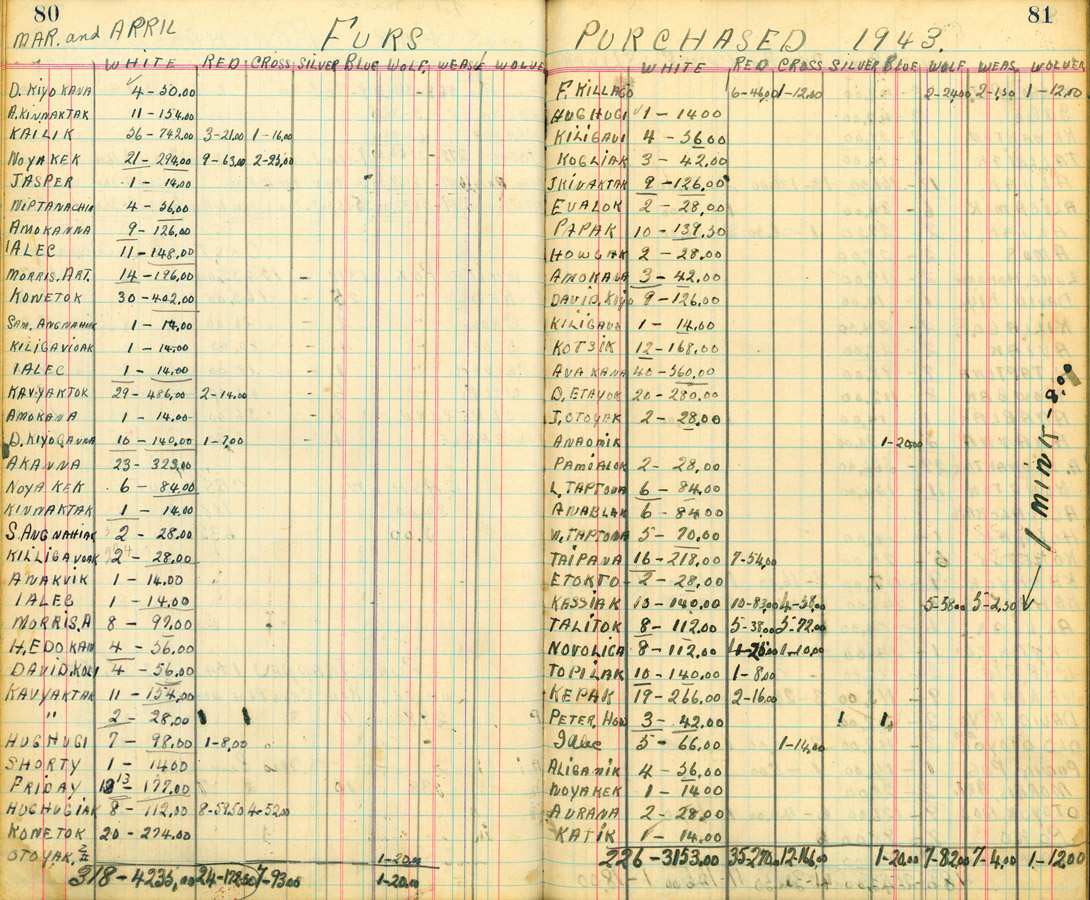 80
MAR. and APRIL FURS
WHITE RED CROSS SILVER BLUE WOLF. WEASL WOLVE
D. KIYOKANA 4 - 50.00
A. KINNAKTAK 11 - 154.00
KAILIK 56 - 742.00 3-21.00 1-16.00
NOYAKEK 21 - 294.00 9-63.00 2-25.00
JASPER 1 - 14.00
NIPTANACHIA 4 - 56.00
AMOKANNA 9 - 126.00
IALEC 11 - 148.00
MORRIS. ART. 14 - 196.00
KONETOK 30 - 402.00
SAM. ANGNAHIAK 1 - 14.00
KILIGAVIOAK 1 - 14.00
IALEC 1 - 14.00
KAVYAKTOK 29 - 486.00 2-14.00
AMOKANA 1 - 14.00
D. KIYOGANNA 10 - 140.00 1-7.00
AKANNA 23 - 323.00
NOYAKEK 6 - 84.00
KINNAKTAK 1 - 14.00
S. ANGNAHIAK 2 - 28.00
KILLIGAVOAK 2 - 28.00
ANAKVIK 1 - 14.00
IALEC 1 - 14.00
MORRIS. A 8 - 99.00
H. EDOKAN 4 - 56.00
DAVID. KOLI 4 - 56.00
KAVYAKTAK 11 - 154.00
" 2 - 28.00
HUGHUGI 7 - 98.00 1-8.00
SHORTY 1 - 14.00
FRIDAY 13 - 177.00
HUGHUGIAK 8 - 112.00 8-59.50 4-52.00
KONETOK 20 - 274.00
OTOYAK. 1-20.00
318 - 4235.00 24-172.50 7-93.00 1-20.00
81
PURCHASED 1943.
WHITE RED CROSS SILVER BLUE WOLF WEAS. WOLVER
F. KILLAGO 6-46.00 1-12.00 2-24.00 2-1.50 1-12.00
HUGHUGI 1 - 14.00
KILIGAVI 4 - 56.00
KOGLIAK 3 - 42.00
J KINAKTAK 9 - 126.00
EVALOK 2 - 28.00
PAPAK 10 - 139.50
HOWGAK 2 - 28.00
AMOKANA 3 - 42.00
DAVID. Kiyo 9 - 126.00
KILIGAVA 1 - 14.00
KOTSIK 12 - 168.00
AVAKANA 40 - 560.00
D. ETAYOK 20 - 280.00
J. OTOYAK 2 - 28.00
ANAOMIK 1-20.00
PAMIALOK 2 - 28.00
L. TAPTONA 6 - 84.00
ANABLAK 6 - 84.00
W. TAPTONA 5 - 70.00
TAIPANA 16 - 218.00 7-54.00
ETOKTO 2 - 28.00
KASSIAK 10 - 140.00 10-82.00 4-38.00 5-58.00 5-2.50
TALITOK 8 - 112.00 5-38.00 5-72.00
NOVOLIGA 8 - 112.00 4-26.00 1-10.00
TOPILAK 10 - 140.00 1-8.00
KEPAK 19 - 266.00 2-16.00
PETER. HOW 3 - 42.00
Ialec 5 - 66.00 1-14.00
ALIGANIK 4 - 56.00
NOYAKEK 1 - 14.00
AVRANA 2 - 28.00
KATIK 1 - 14.00
226 - 3153.00 35-270.00 12-166.00 1-20.00 7-82.00 7-4.00 1-12.00
1 MINK - 8.00